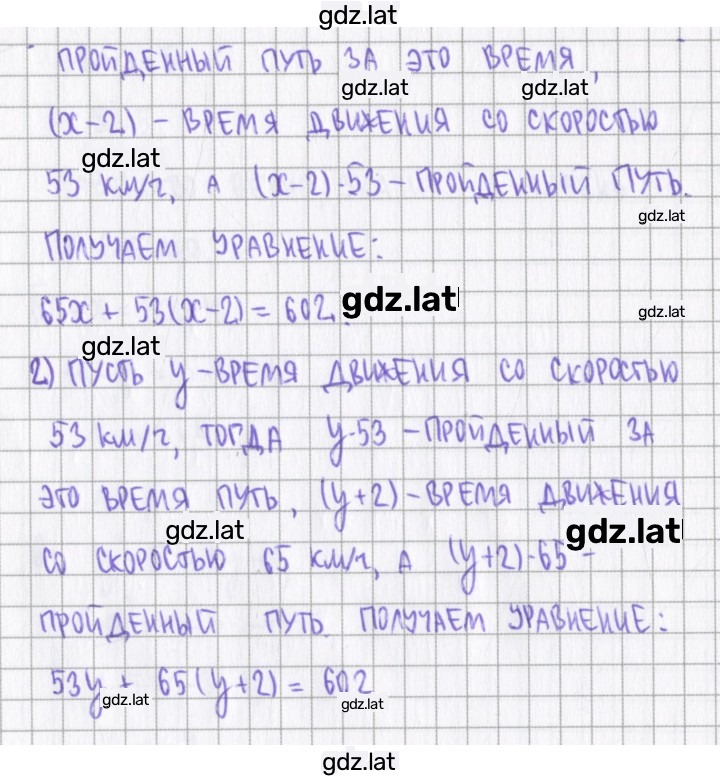 gdz.lat
ПРОЙДЕННЫЙ ПУТЬ ЗА ЭТО ВРЕМЯ,
gdz.lat gdz.lat
(x-2) - ВРЕМЯ ДВИЖЕНИЯ СО СКОРОСТЬЮ
gdz.lat
53 КМ/Ч, А (x-2)·53 - ПРОЙДЕННЫЙ ПУТЬ.
gdz.lat
ПОЛУЧАЕМ УРАВНЕНИЕ:
65x + 53(x-2) = 602. gdz.lat gdz.lat
gdz.lat
2) ПУСТЬ y - ВРЕМЯ ДВИЖЕНИЯ СО СКОРОСТЬЮ
53 КМ/Ч, ТОГДА y·53 - ПРОЙДЕННЫЙ ЗА
ЭТО ВРЕМЯ ПУТЬ, (y+2) - ВРЕМЯ ДВИЖЕНИЯ
gdz.lat gdz.lat
СО СКОРОСТЬЮ 65 КМ/Ч, А (y+2)·65 -
ПРОЙДЕННЫЙ ПУТЬ ПОЛУЧАЕМ УРАВНЕНИЕ:
53y + 65(y+2) = 602
gdz.lat gdz.lat
gdz.lat